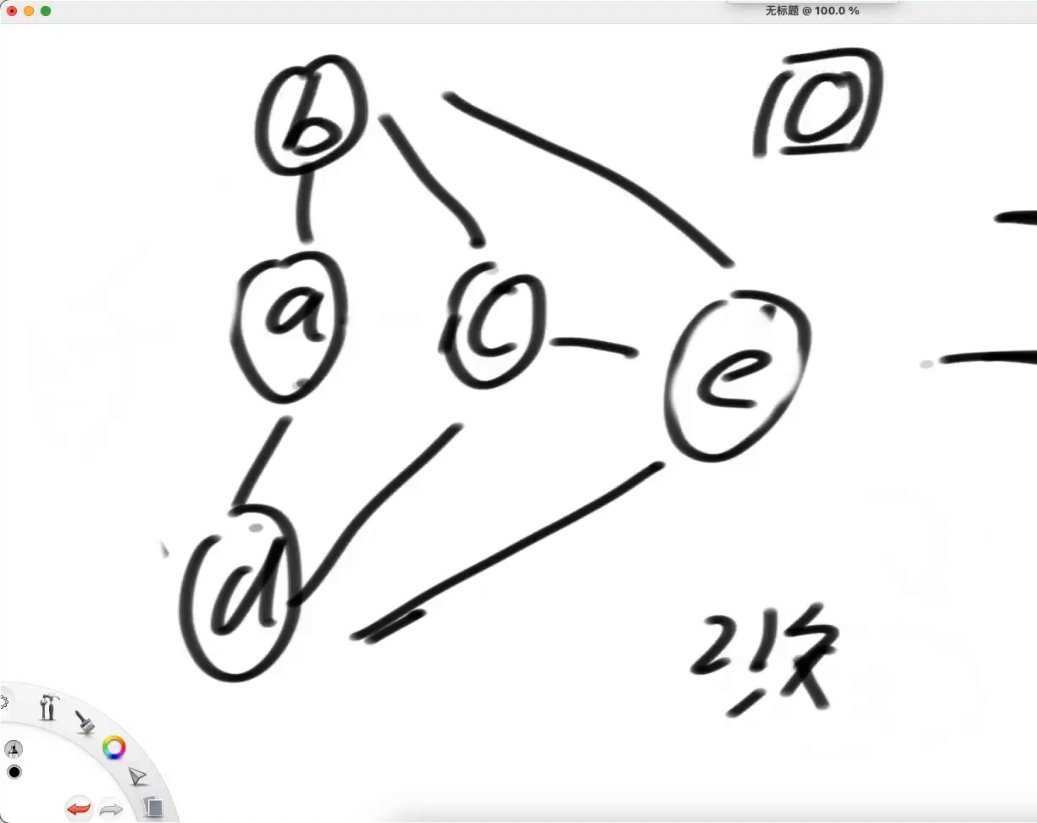 无标题 @ 100.0 %
b
a
c
e
d
2次